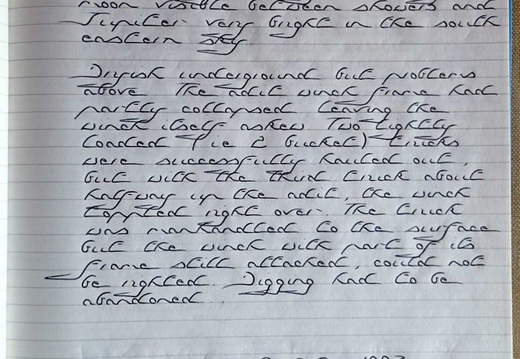 moon visible between showers and
Jupiter very bright in the south
eastern sky.
Dryish underground but problems
above. The adit winch frame had
partly collapsed leaving the
winch itself askew. Two lightly
loaded (ie 2 bucket) trucks
were successfully hauled out,
but with the third truck about
halfway up the adit, the winch
toppled right over. The truck
was manhandled to the surface
but the winch with part of its
frame still attached, could not
be righted. Digging had to be
abandoned.